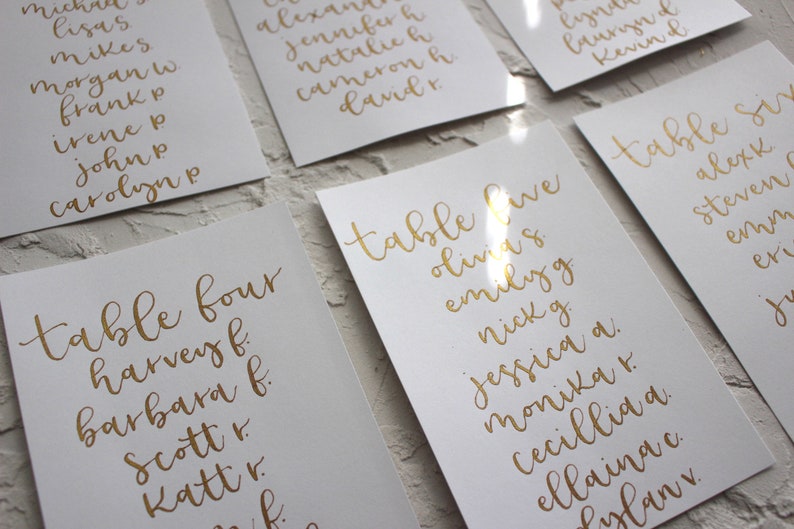 michael s.
lisa s.
mike s.
morgan w.
frank p.
irene p.
john p.
carolyn p.
jennifer h.
natalie h.
cameron h.
david r.
lauryn d.
kevin d.
table four
harvey f.
barbara f.
scott r.
katt r.
f.
table five
olivia s.
emily g
nick g.
jessica a.
monika r.
cecillia a.
ellaina c.
dylan v.
table six
alex k.
steven